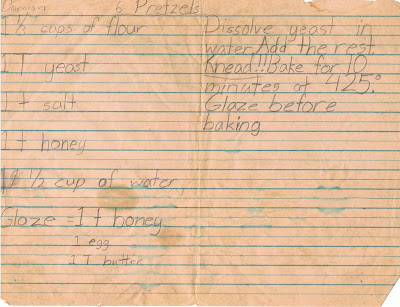 6 Pretzels
1 ½ cups of flour
1 T yeast
1 t salt
1 t honey
½ cup of water
Glaze = 1 t honey
1 egg
1 T butter
Dissolve yeast in
water. Add the rest.
Knead!! Bake for 10
minutes at 425°.
Glaze before
baking